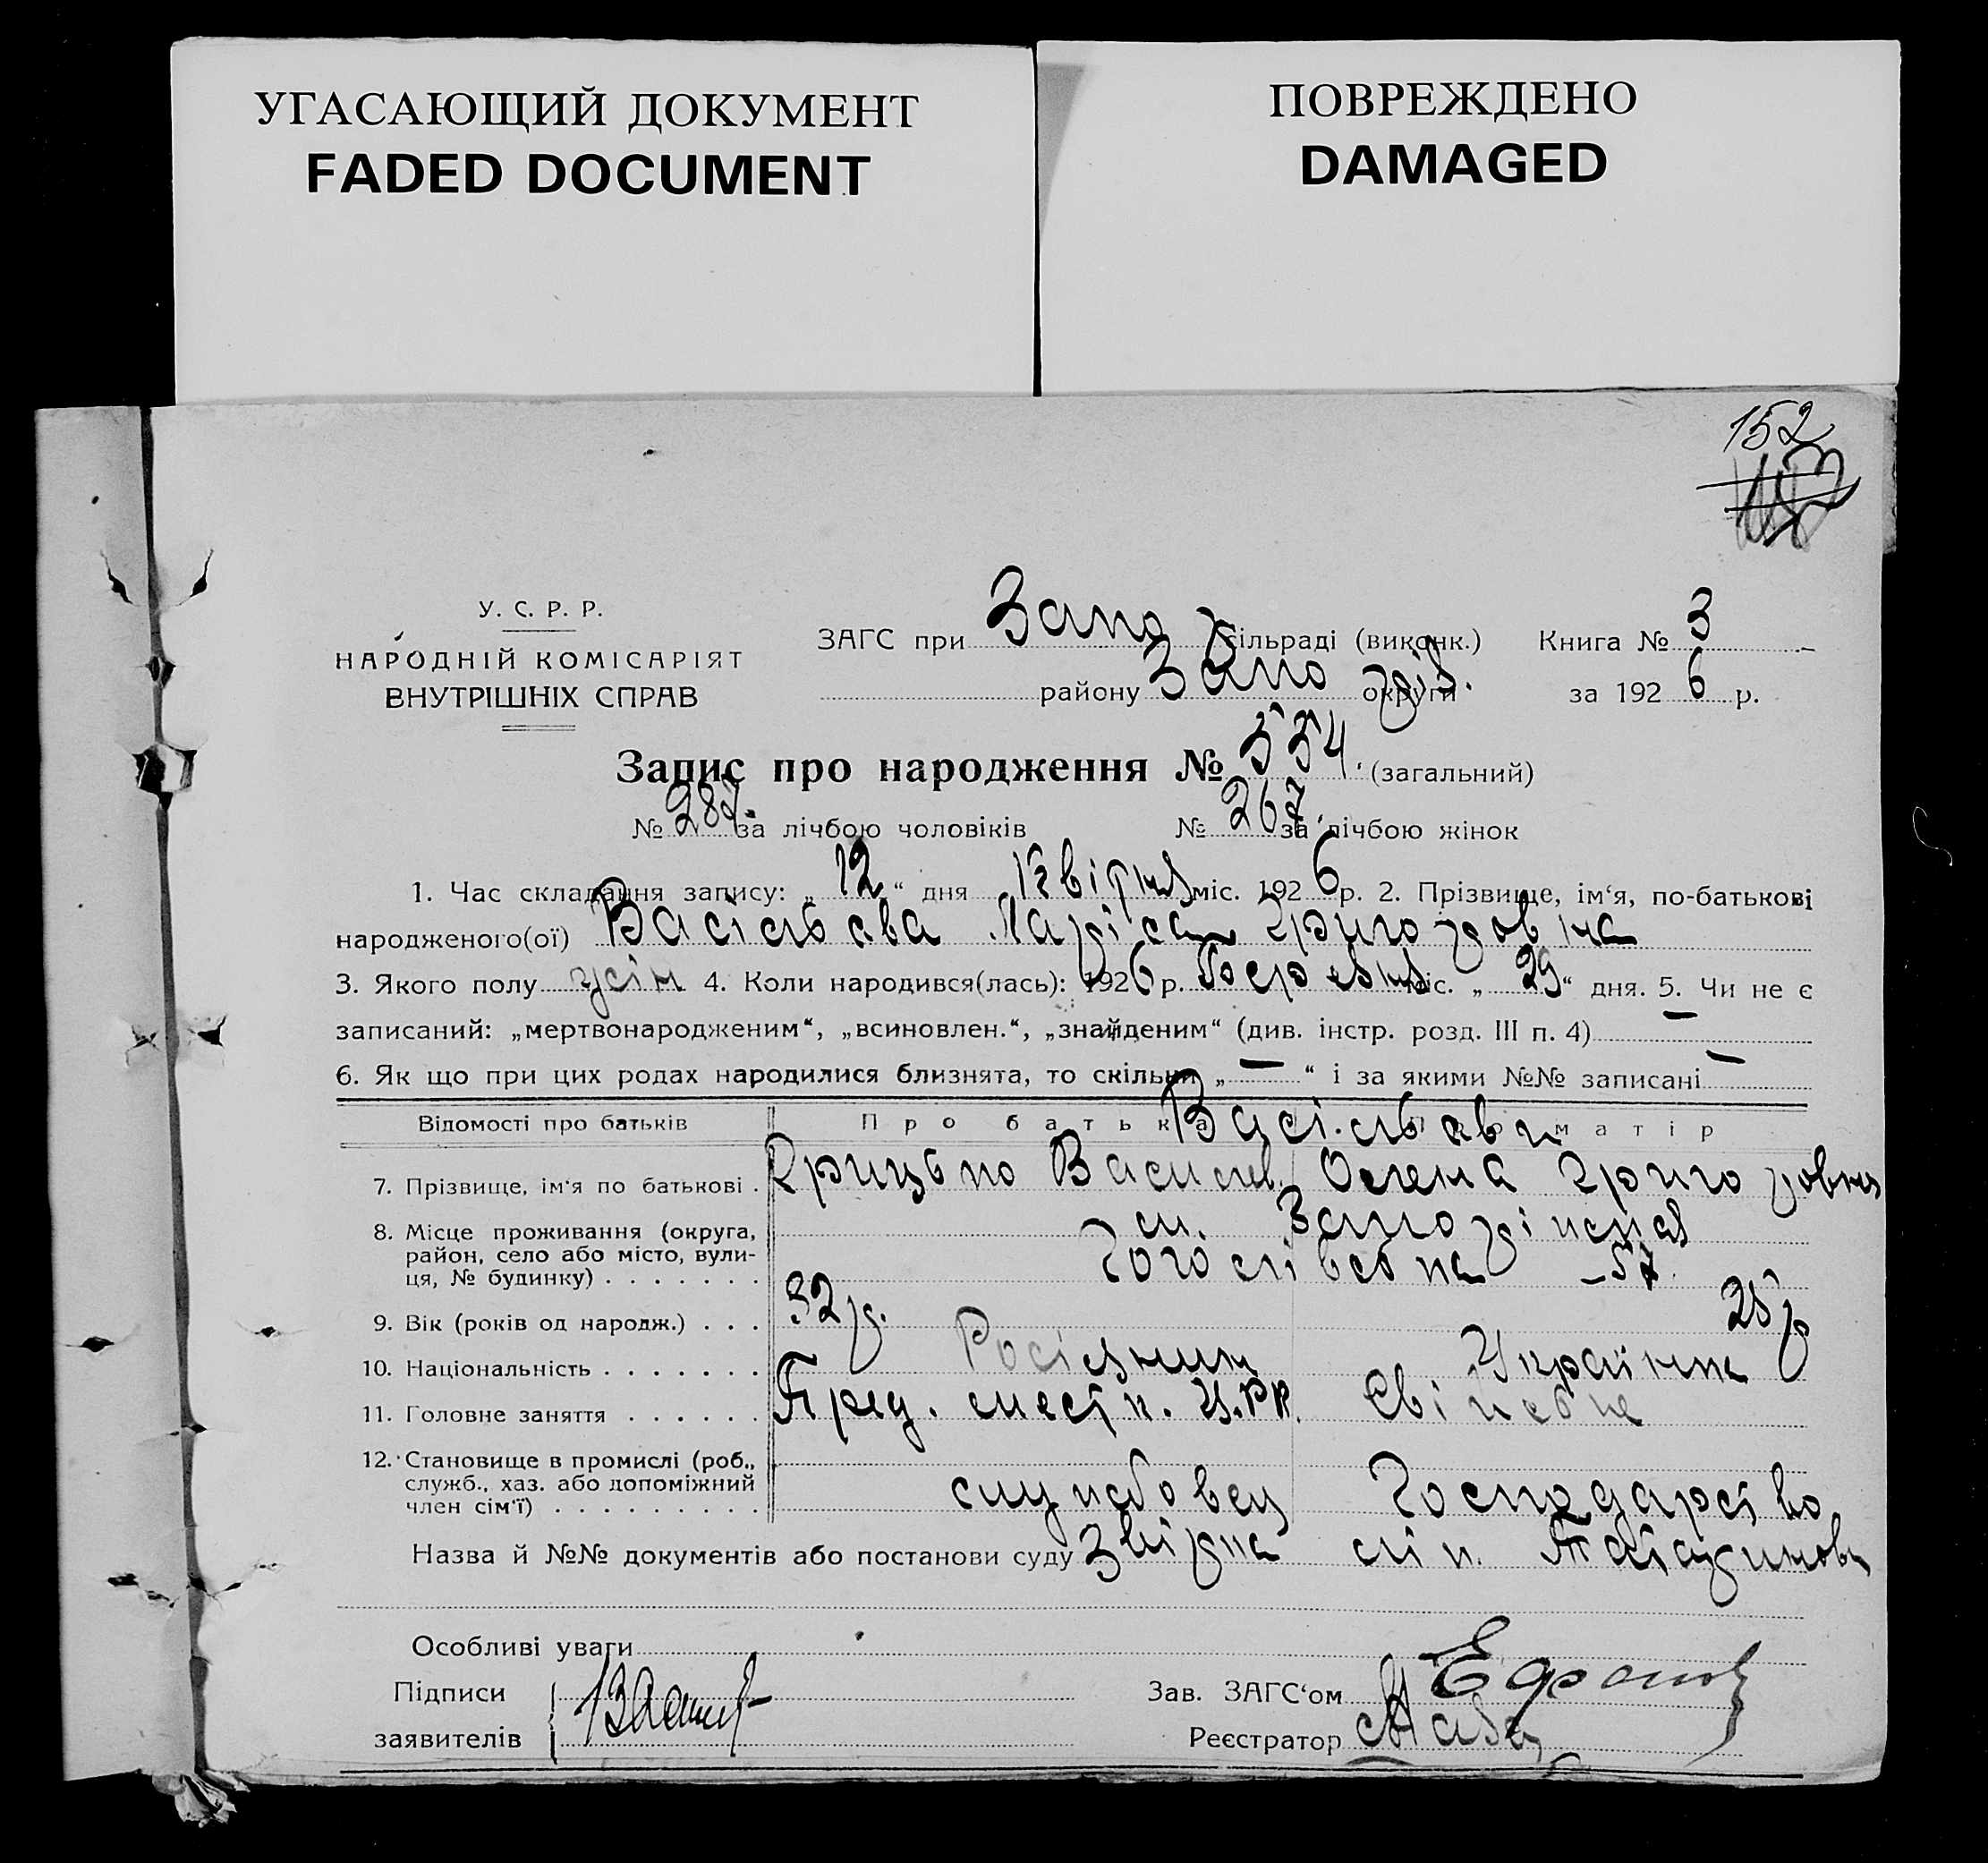 УГАСАЮЩИЙ ДОКУМЕНТ
FADED DOCUMENT
ПОВРЕЖДЕНО
DAMAGED
152
У. С. Р. Р.
НАРОДНІЙ КОМІСАРІЯТ
ВНУТРІШНІХ СПРАВ
ЗАГС при Запор сільраді (виконк.) Книга № 3
району Запорід. округи за 1926 р.
Запис про народження № 554. (загальний)
№ 287. за лічбою чоловіків № 267. за лічбою жінок
1. Час складання запису: „12“ дня Квітня міс. 1926 р. 2. Прізвище, ім‘я, по-батькові
народженого(ої) Васільєва Ларіса Григоровіна
3. Якого полу жін 4. Коли народився(лась): 1926 р. міс. „29“ дня. 5. Чи не є
записаний: „мертвонародженим“, „всиновлен.“, „знайденим“ (див. інстр. розд. III п. 4) —
6. Як що при цих родах народилися близнята, то скільки „—“ і за якими №№ записані —
Відомості про батьків Про батька матір
Васільєви
7. Прізвище, ім‘я по батькові . Грицько Василев. Олена Григоровна
8. Місце проживання (округа, м. Запоріжжя
район, село або місто, вули-
ця, № будинку) . . . . . . . – 57.
9. Вік (років од народж.) . . . 32 р. 25 р
10. Національність . . . . . . . Росіянин Українка
11. Головне заняття . . . . . . Пред. Свійське
12. Становище в промислі (роб.,
служб., хаз. або допоміжний службовец Господарство
член сім‘ї) . . . . . . . . .
Назва й №№ документів або постанови суду Звірка
Особливі уваги
Підписи
заявителів
Зав. ЗАГС‘ом
Реєстратор